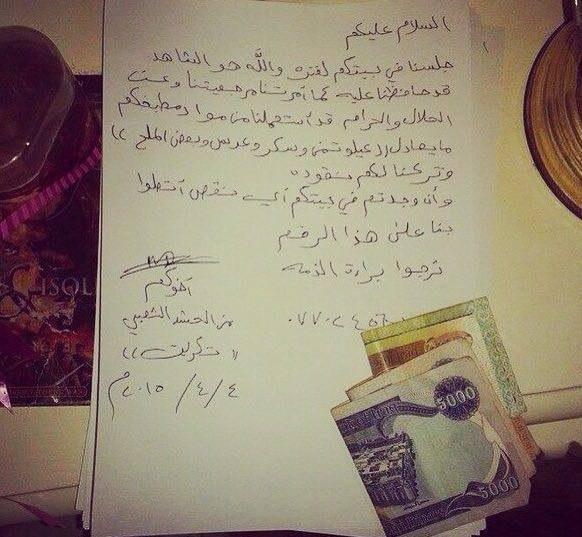 السلام عليكم
جلسنا في بيتكم لفتره والله هو الشاهد
قد حافظنا عليه كما أمرتنا مرجعيتنا وعن
الحلال والحرام قد استعملنا من مواد مطبخكم
ما يعادل ١ كيلو تمن وسكر وعدس وبعض الملح ))
وتركنا لكم نقوده
وأن وجدتم في بيتكم أي نقص أتصلوا
بنا على هذا الرقم
نرجوا براءة الذمه
أخوكم
من الحشد الشعبي
٠٧٧٠٢٤٥٦
(( تكريت ))
٤ / ٤ / ٢٠١٥ م
5000
5000
ISOL